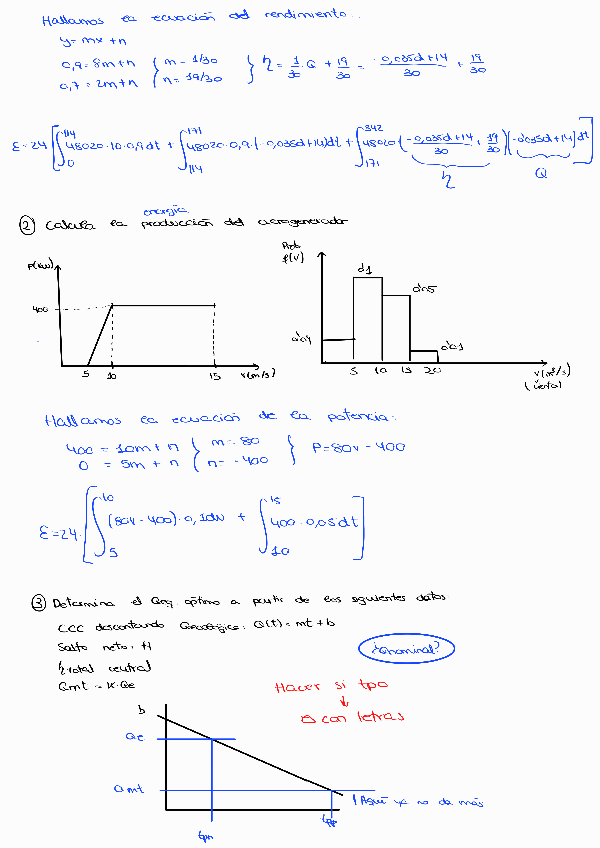 Hallamos la ecuación del rendimiento.
y = mx + n
0,9 = 8m + n } m = 1/30
0,7 = 2m + n } n = 19/30
} η = 1/30 · Q + 19/30 = -0,035d+14/30 + 19/30
E = 24 [ ∫₀¹¹⁴ 48020·10·0,9dt + ∫₁₁₄¹⁷¹ 48020·0,9·(-0,035d+14)dt + ∫₁₇₁³⁴² 48020 (-0,035d+14/30 + 19/30)(-0'035d+14)dt ]
η Q
energía
② Calcula la producción del aerogenerador
P(kW)
400
5 10 15 v(m/s)
Prob
f(v)
0'1
0'05
0'04
0'01
5 10 15 20 v(m³/s)
(viento)
Hallamos la ecuación de la potencia:
400 = 10m + n } m = 80
0 = 5m + n } n = -400
} P = 80v - 400
E = 24· [ ∫₅¹⁰ (80v - 400)·0,1dv + ∫₁₀¹⁵ 400·0,05dt ]
③ Determina el Qeq. óptimo a partir de los siguientes datos
CCC descontando Qecológico: Q(t) = mt + b
Salto neto: H
η total central
Qmt = K·Qe
¿Qnominal?
Hacer si tpo
↓
Δ con letras
b
Qe
Qmt
tpn
! Aquí ya no da más